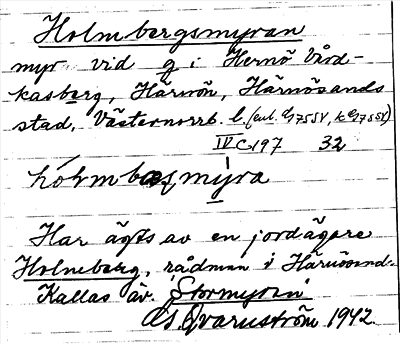 Holmbergsmyran
myr vid g i Hernö Vård-
kasberg, Härnön, Härnösands
stad, Västernorrl. l. (enl.
IV C 197 32
Har ägts av en jordägare
Holmberg, rådman i Härnösand.
Kallas äv. Stormyran
G. Qvarnström 1942.